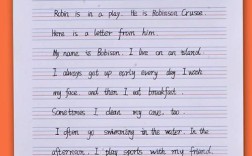 Robin is in a play. He is Robinson Crusoe.
Here is a letter from him.
My name is Robinson. I live on an island.
I always get up early every day. I wash
my face, and then I eat breakfast.
Sometimes I clean my cave, too.
I often go swimming in the water. In the
afternoon, I play sports with my friend,